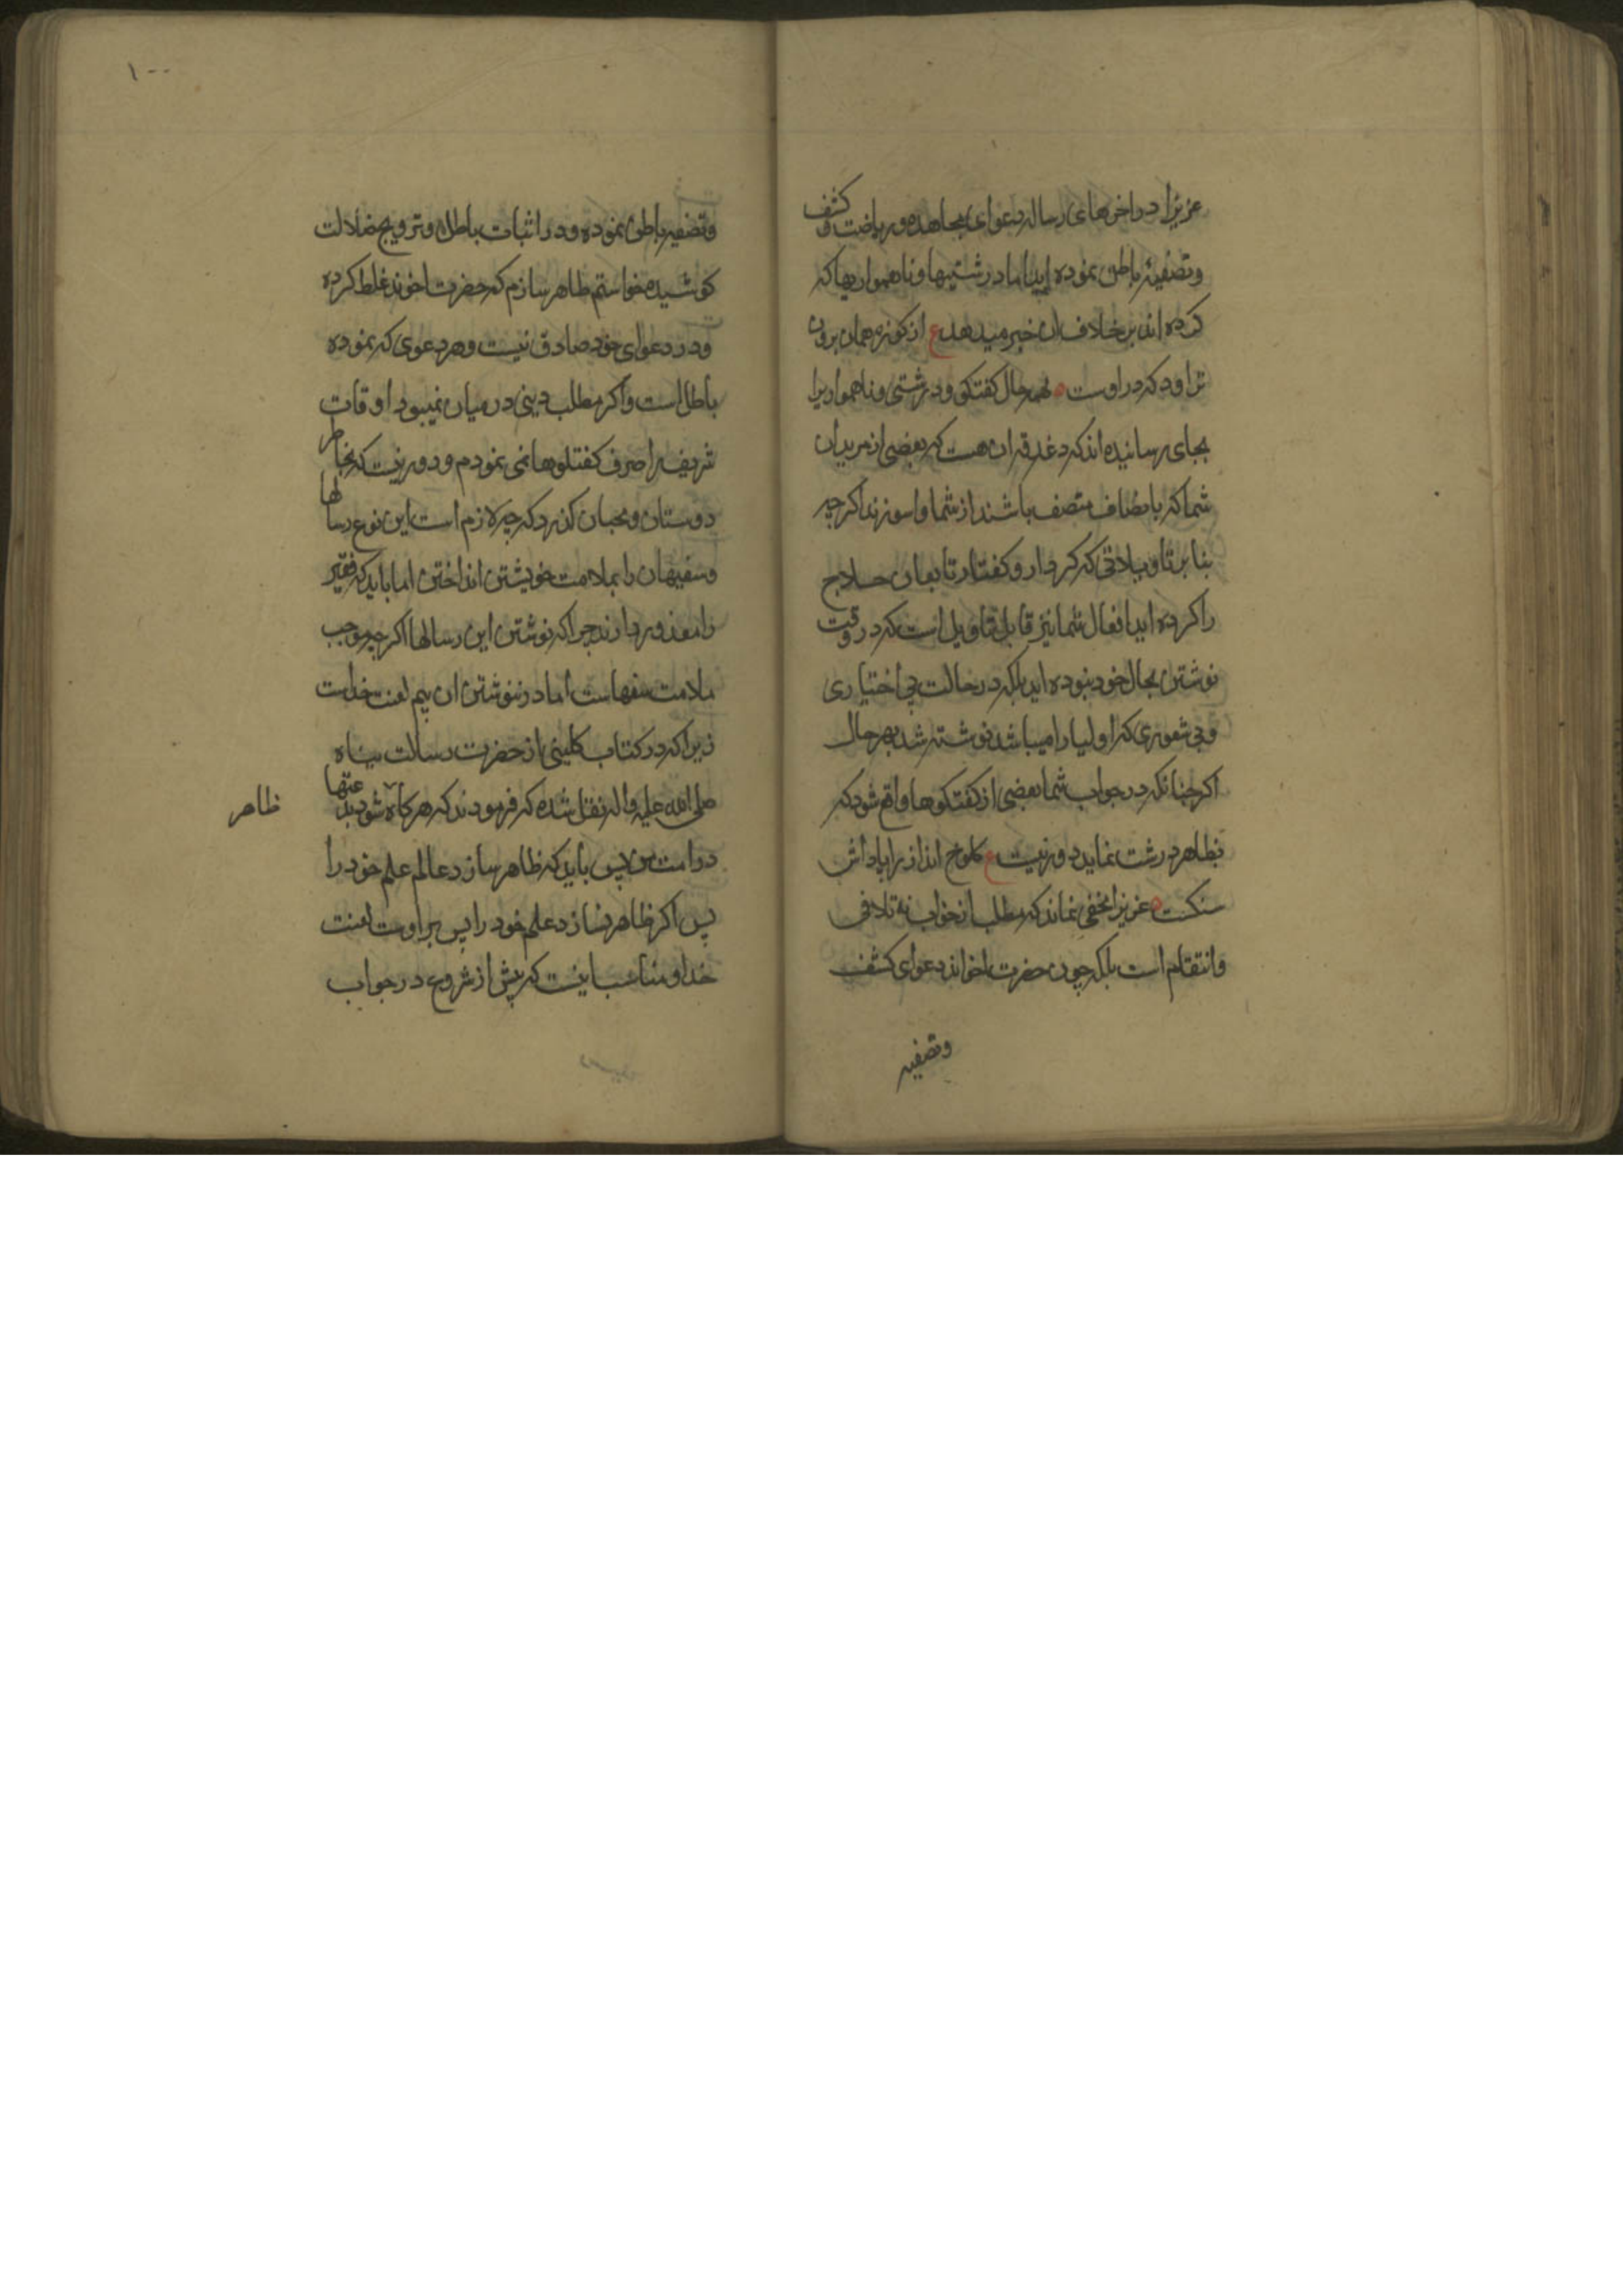 عزیزا در اخرهای رساله دعوای مجاهده و ریاضت و کشف
و تصفیهٔ باطن نموده ایید اما درشتیها و ناهمواریها که
کرده اند بر خلاف ان خبر میدهد ع از کوزه همان برون
تراود که در اوست ه بهر حال کفتکو و درشتی و ناهمواریرا
بجای رسانیده اند که دغدغه ان هست که بعضی از مریدان
شما که بانصاف متصف باشند از شما واسوزند اکرچه
بنا بر تاویلاتی که کردار و کفتار تابعان حلاج
را کرده اید افعال شما نیز قابل تاویل است که در وقت
نوشتن بحال خود نبوده اید بلکه در حالت بی اختیاری
و بی شعوری که اولیا را میباشد نوشته شد بهر حال
اکر چنانکه در جواب شما بعضی از کفتکوها واقع شود که
بظاهر درشت نماید دور نیست ع کلوخ انداز را پاداش
سنکست ه عزیزا مخفی نماند که مطلب از جواب نه تلافی
و انتقام است بلکه چون حضرت اخواند دعوای کشف
و تصفیه
۱۰۰
و تصفیه باطن نموده و در اثبات باطل و ترویج ضلالت
کوشیده خواستم ظاهر سازم که حضرت اخوند غلط کرده
و در دعوای خود صادق نیست و هر دعوی که نموده
باطل است و اکر مطلب دینی در میان نمیبود اوقات
شریف را صرف کفتکوها نمی نمودم و دور نیست که بخاطر
دوستان و محبان کذرد که چه لازم است این نوع رسالها
و سفیهان را بملامت خویشتن انداختن اما باید که فقیر
را معذور دارند چرا که نوشتن این رسالها اکرچه موجب
ملامت سفهاست اما در ننوشتن ان بیم لعنت خداست
زیرا که در کتاب کلینی از حضرت رسالت پناه
صلی الله علیه و اله نقل شده که فرمودند که هرکاه شود بدعتها
ظاهر
در امت من پس باید که ظاهر سازد عالم علم خود را
پس اکر ظاهر نسازد علم خود را پس بر اوست لعنت
خدا و مناسب اینست که پیش از شروع در جواب